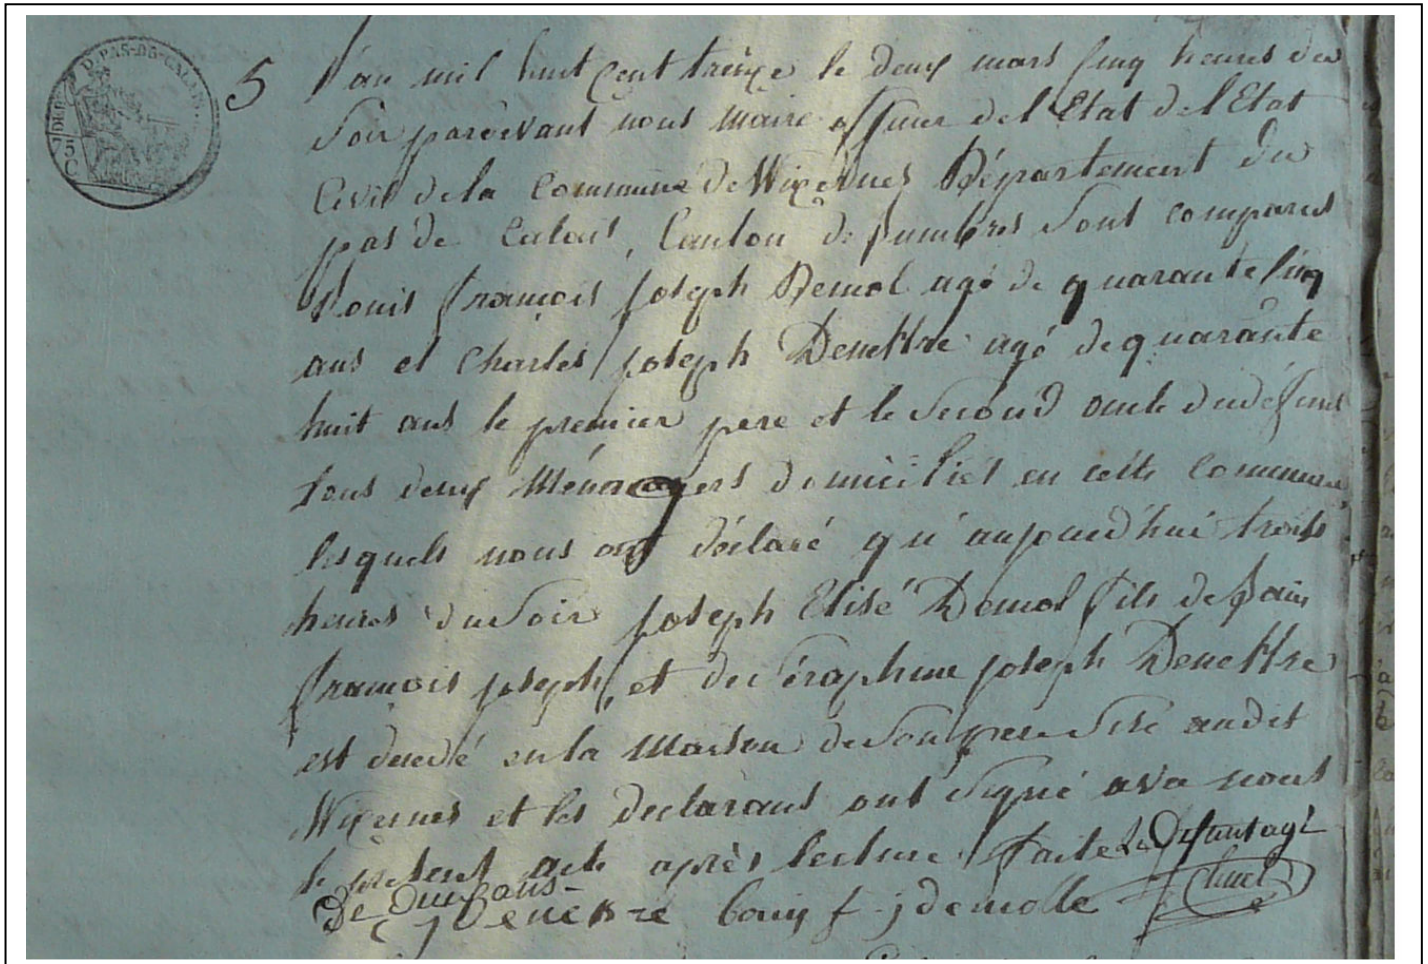 DEP. D. PAS-DE-CALAIS.
75
C
5
L'an mil huit cent treize le deux mars cinq heures du
Soir pardevant nous Maire officier de l'Etat de l'Etat
Civil de la Commune de Wizernes Département du
pas de Calais, Canton de Lumbres Sont comparus
Louis François Joseph Demol agé de quarante cinq
ans et Charles Joseph Denettre agé de quarante
huit ans le premier pere et le Second oncle du défunt
tous deux Ménagers domiciliés en cette commune
lesquels nous ont déclaré qu'aujourd'hui trois
heures du Soir Joseph Elisé Demol fils de Louis
François Joseph, et de Séraphine Joseph Denettre
est decedé en la Maison de Son pere Sise audit
Wizernes et les declarans ont Signé avec nous
le présent acte après lecture faite Le Défunt agé
De ans
Denettre Louis f. j demolle